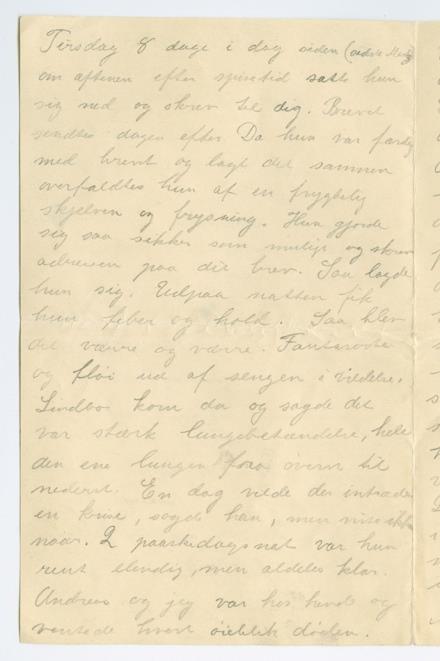 Tirsdag 8 dage i dag siden (sidste
om aftenen efter spisetid satte hun
sig ned og skrev til dig. Brevet
sendtes dagen efter Da hun var færdig
med brevet og lagt det sammen
overfaldtes hun af en frygtelig
skjelven og frysning. Hun gjorde
sig saa sikker som mulig og skrev
adressen paa dit brev. Saa lagde
hun sig. Udpaa natten fik
hun feber og hold. Saa blev
det værre og værre. Fantaserte
og fløi ud af sengen i vildelse.
Lindboe kom da og sagde det
var stærk lungebetændelse, hele
den ene lungen fraa øverst til
nederst. En dag vilde der indtræde
en krise, sagde han, men viss ikke
naar. 2 paaskedags nat var hun
rent elendig, men aldeles klar.
Andreas og jeg var hos hende og
ventede hvert øieblik døden.